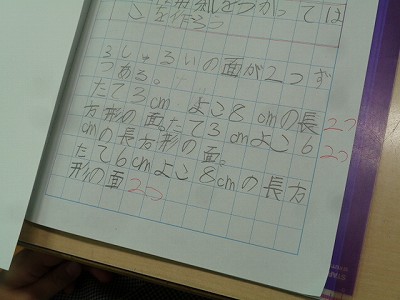 つかっては
こを作ろう
3しゅるいの面が2つず
つある。
たて3cm よこ8cmの長2つ
方形の面。たて3cmよこ6
cmの長方形の面。2つ
たて6cmよこ8cmの長方
形の面2つ